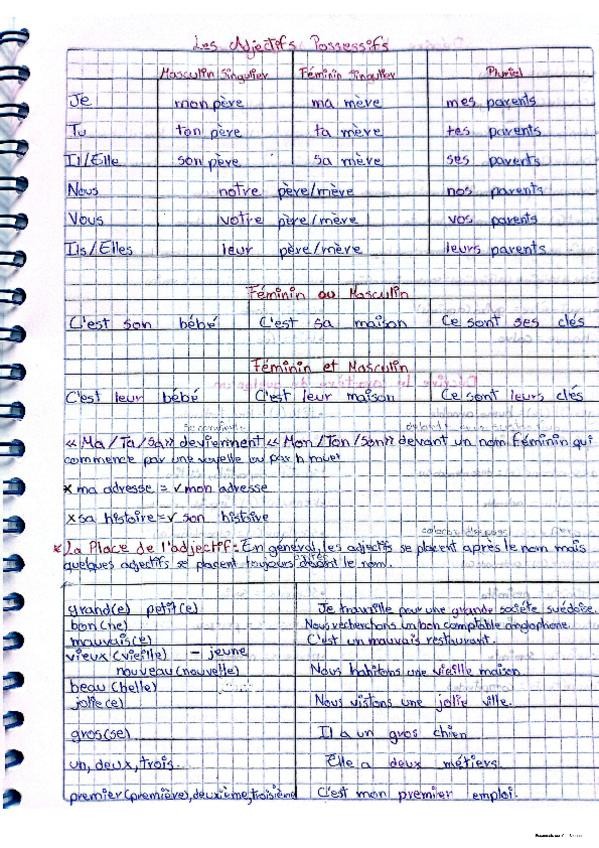 Les Adjectifs Possessifs
Masculin Singulier Féminin Singulier Pluriel
Je mon père ma mère mes parents
Tu ton père ta mère tes parents
Il/Elle son père sa mère ses parents
Nous notre père/mère nos parents
Vous votre père/mère vos parents
Ils/Elles leur père/mère leurs parents
Féminin ou Masculin
C'est son bébé C'est sa maison Ce sont ses clés
Féminin et Masculin
C'est leur bébé C'est leur maison Ce sont leurs clés
« Ma/Ta/Sa» deviennent « Mon/Ton/Son» devant un nom féminin qui
commence par une voyelle ou par h muet
× ma adresse = √ mon adresse
× sa histoire = √ son histoire
* La Place de l'adjectif: En général, les adjectifs se placent après le nom mais
quelques adjectifs se placent toujours devant le nom.
grand(e) petit(e) Je travaille pour une grande société suédoise.
bon(ne) Nous recherchons un bon comptable anglophone.
mauvais(e) C'est un mauvais restaurant.
vieux (vieille) - jeune
nouveau (nouvelle) Nous habitons une vieille maison
beau (belle)
jolie(e) Nous vistons une jolie ville.
gros(se) Il a un gros chien
un, deux, trois.. Elle a deux métiers
premier(première), deuxième, troisième C'est mon premier emploi.